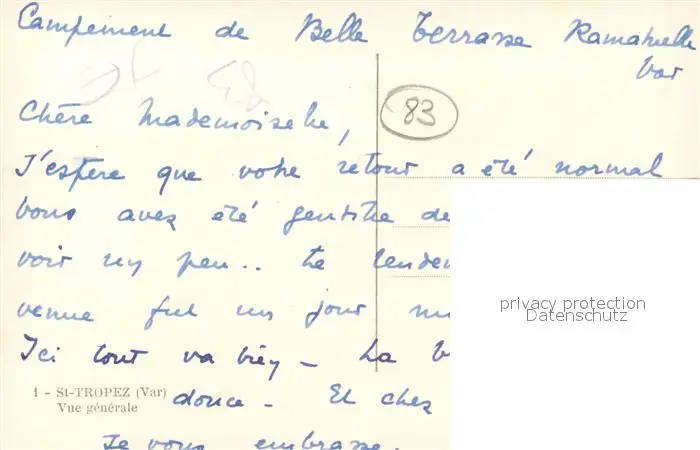 Campement de Belle Terrasse Ramatuelle
Var
83
Chère Mademoiselle,
J'espère que votre retour a été normal
Vous avez été gentille de
voir un peu.. Le lendem
venue fut un jour
privacy protection
Datenschutz
Ici tout va bien - La
1 - St-TROPEZ (Var)
Vue générale
douce - Et chez
Je vous embrasse.